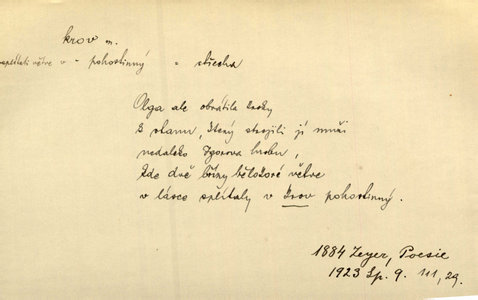 krov m.
spéstati větve v - pohostinný = střecha
Olga ale obrátila kroky
k stanu, který strojili jí muži
nedaleko Igorova hrobu,
kde dvě břízy běložové větve
v lásce spéstaly v krov pohostinný.
1884 Zeyer, Poesie
1923 Sp. 9. 111, 29.